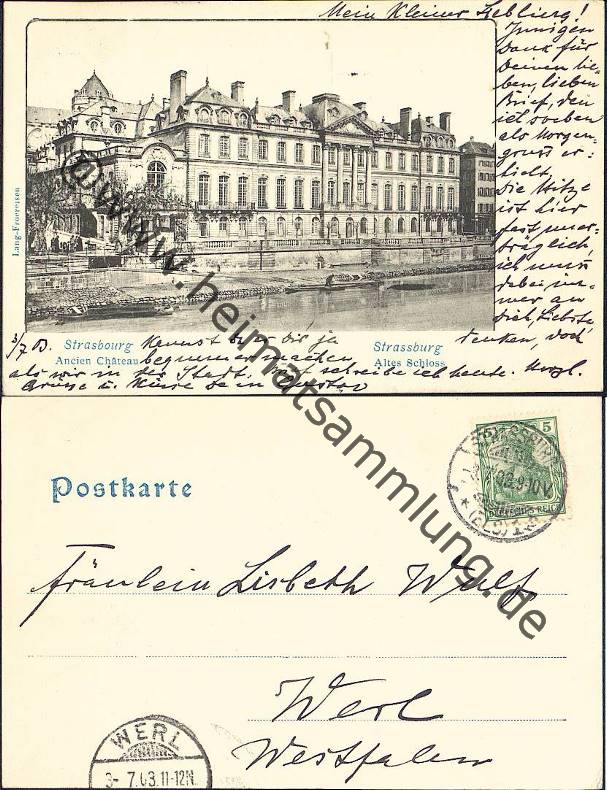 Mein kleiner Liebling!
Innigen
Dank für
Deinen lie-
ben, lieben
Brief, den
ich soeben
als Morgen-
gruss er-
hielt.
Die Hitze
ist hier
fast uner-
träglich,
ich muss
dabei im-
mer an
Dich, Liebste
denken, doch
Lang-Feuereisen
3/7 03.
Strasbourg
Ancien Château
Strassburg
Altes Schloss
kannst Du es Dir ja
bequemer machen,
als wir in der Stadt. schreibe ich heute. Herzl.
Grüsse u. Küsse Dein Gustav
@www.heimatsammlung.de
Postkarte
5
DEUTSCHES REICH
STRASSBURG
9-10V
(ELS)
Fräulein Lisbeth Wulf
Werl
Westfalen
WERL
3- 7.03.11-12N.